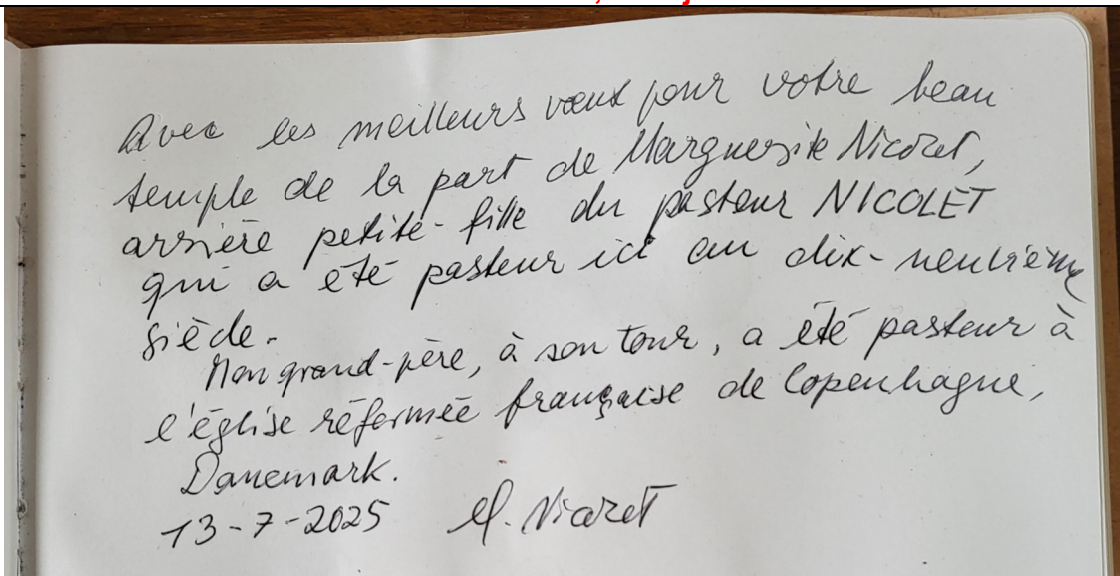 Avec les meilleurs vœux pour votre beau
temple de la part de Marguerite Nicolet,
arrière petite-fille du pasteur NICOLET
qui a été pasteur ici au dix-neuvième
siècle.
Mon grand-père, à son tour, a été pasteur à
l'église réformée française de Copenhague,
Danemark.
13-7-2025 M. Nicolet